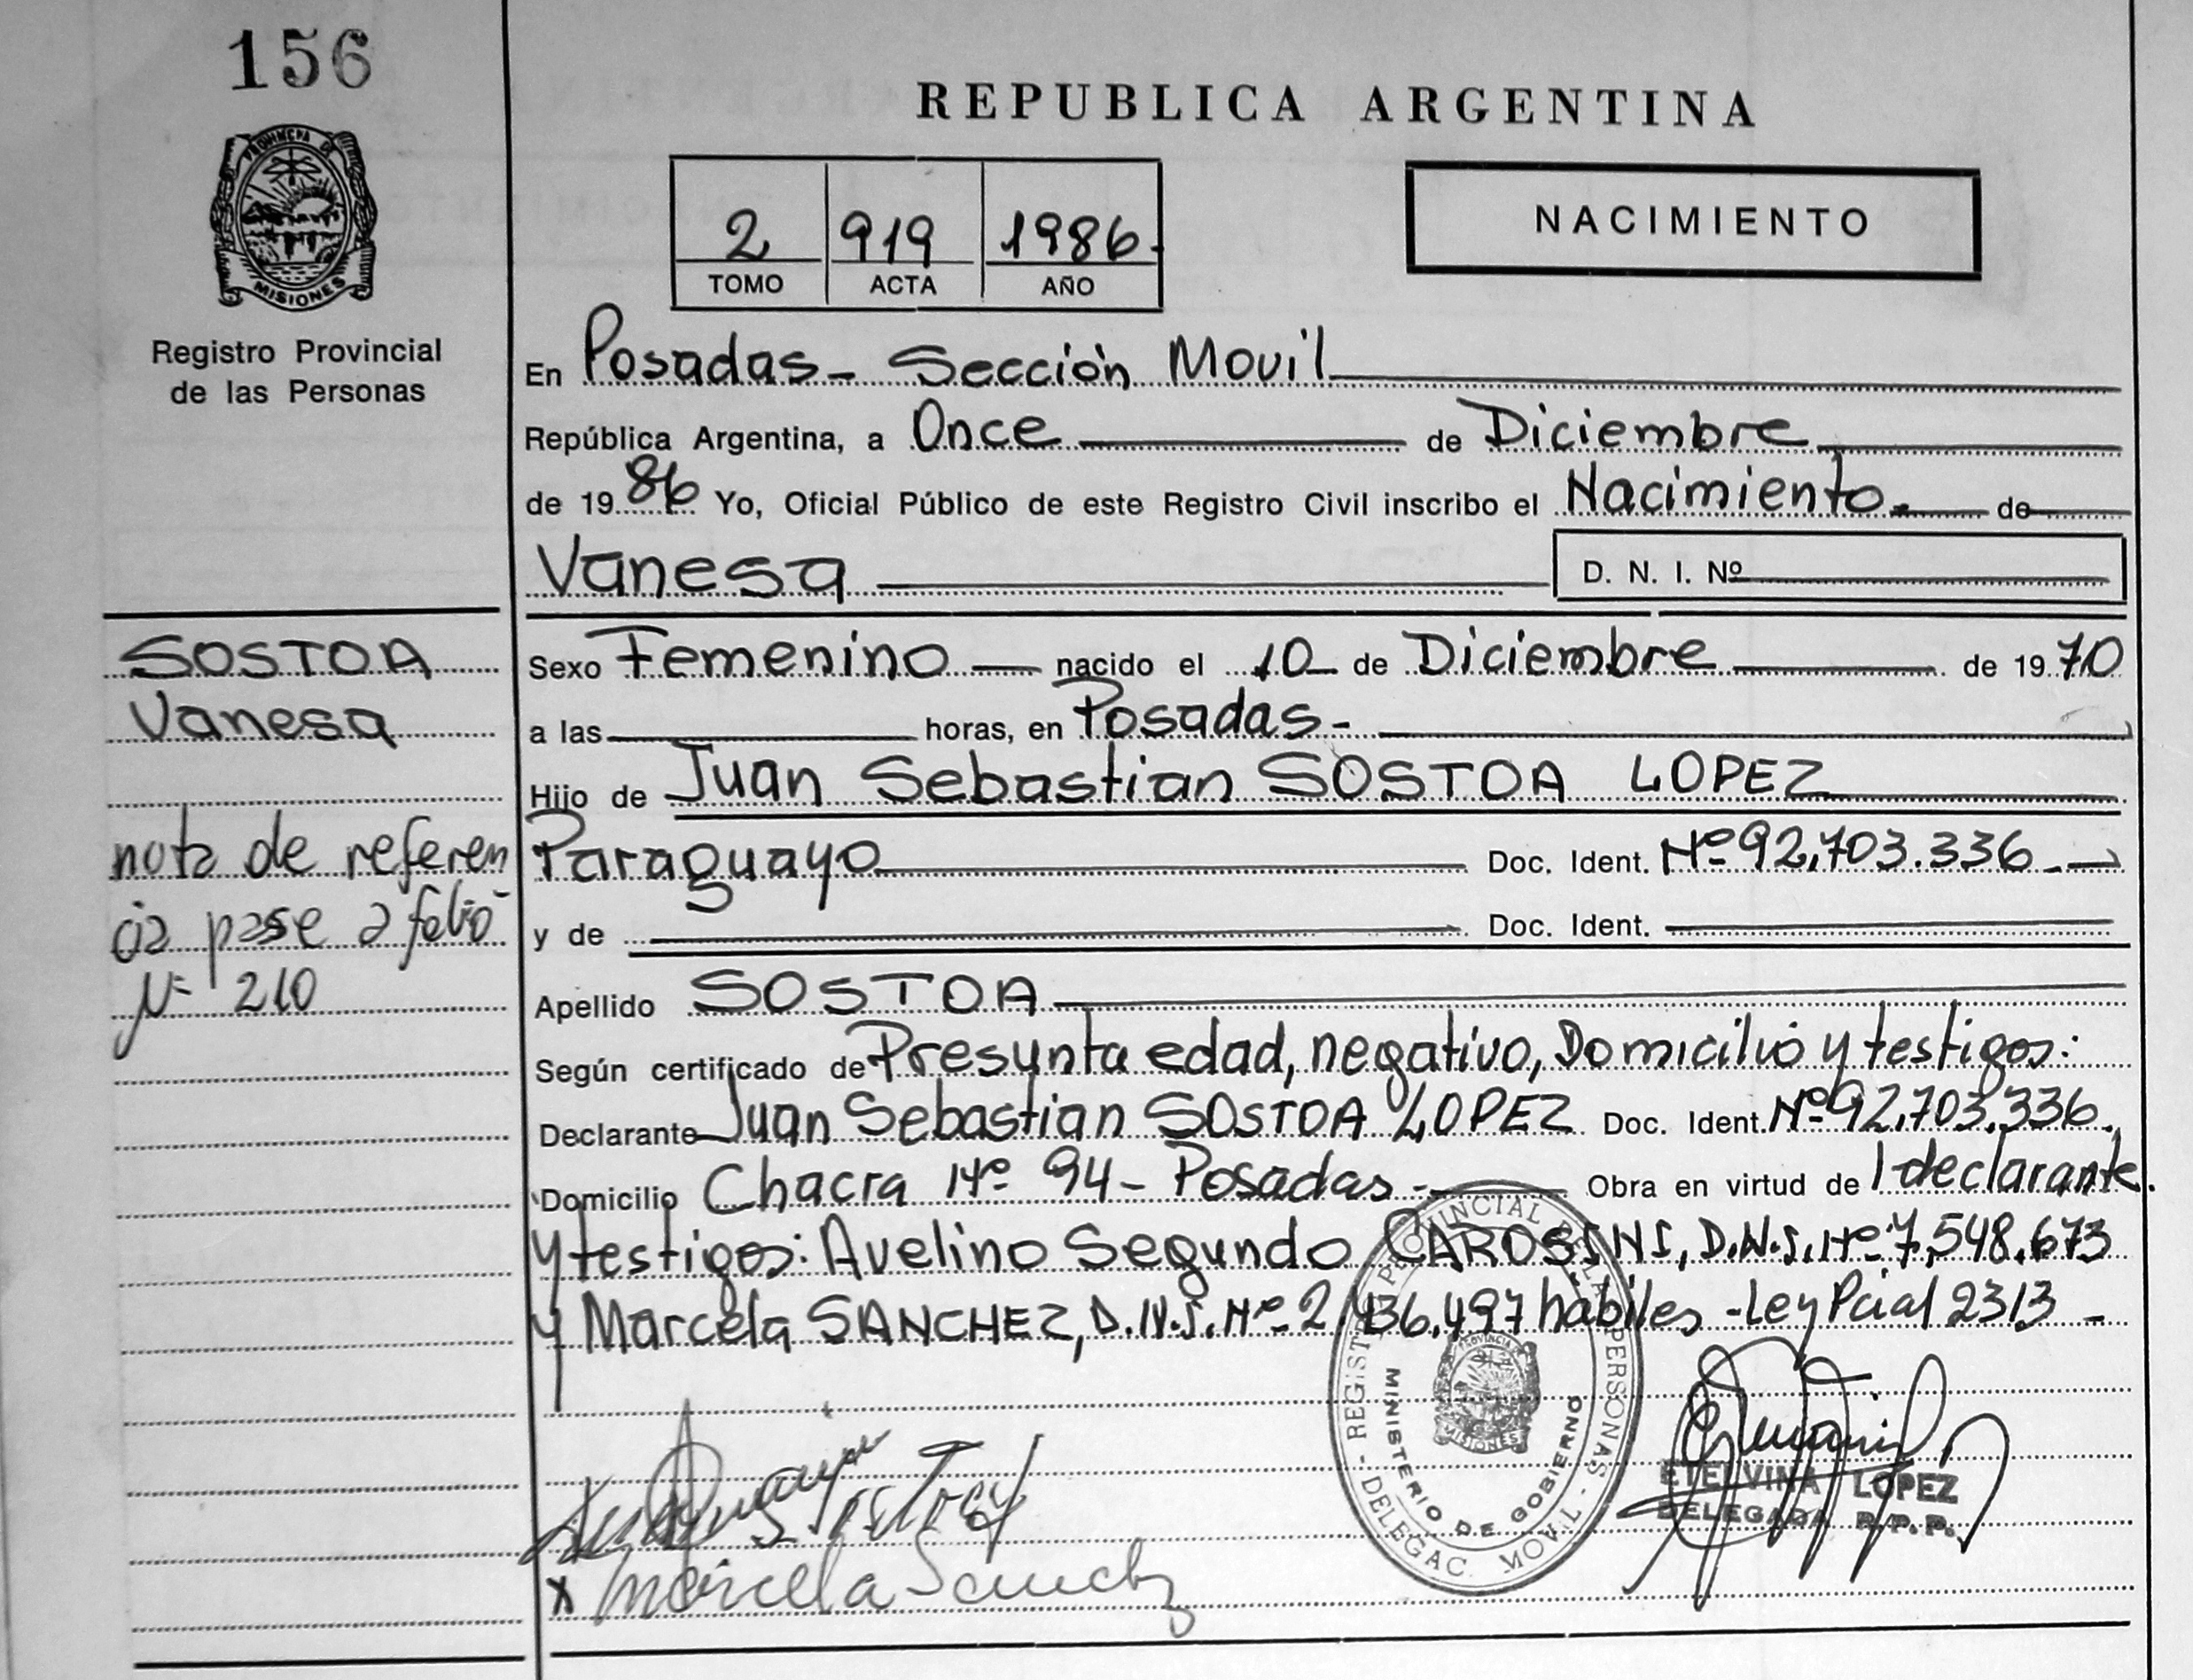 156
PROVINCIA DE
MISIONES
Registro Provincial
de las Personas
REPUBLICA ARGENTINA
2 919 1986.
TOMO ACTA AÑO
NACIMIENTO
En Posadas - Sección Movil
República Argentina, a Once de Diciembre
de 19 86 Yo, Oficial Público de este Registro Civil inscribo el Nacimiento. de
Vanesa D. N. I. Nº
SOSTOA
Vanesa
nota de referen
cia pase a folio
Nº 210
Sexo Femenino nacido el 10 de Diciembre de 19 70
a las horas, en Posadas -
Hijo de Juan Sebastian SOSTOA LOPEZ
Paraguayo Doc. Ident. Nº 92.703.336 -
y de Doc. Ident.
Apellido SOSTOA
Según certificado de Presunta edad, negativo, Domicilio y testigos:
Declarante Juan Sebastian SOSTOA LOPEZ Doc. Ident. Nº 92.703.336.
Domicilio Chacra Nº 94 - Posadas - Obra en virtud de l declarante.
y testigos: Avelino Segundo CAROSSINI, D.N.I. Nº 7.548.673
y Marcela SANCHEZ, D.N.I. Nº 2.436.497 habiles - Ley Pcial 2313 -
REGISTRO PROVINCIAL DE LAS PERSONAS
- DELEGAC. MOVIL -
MINISTERIO DE GOBIERNO
PROVINCIA
MISIONES
ETELVINA LOPEZ
DELEGADA R.P.P.
x Marcela Sanchez